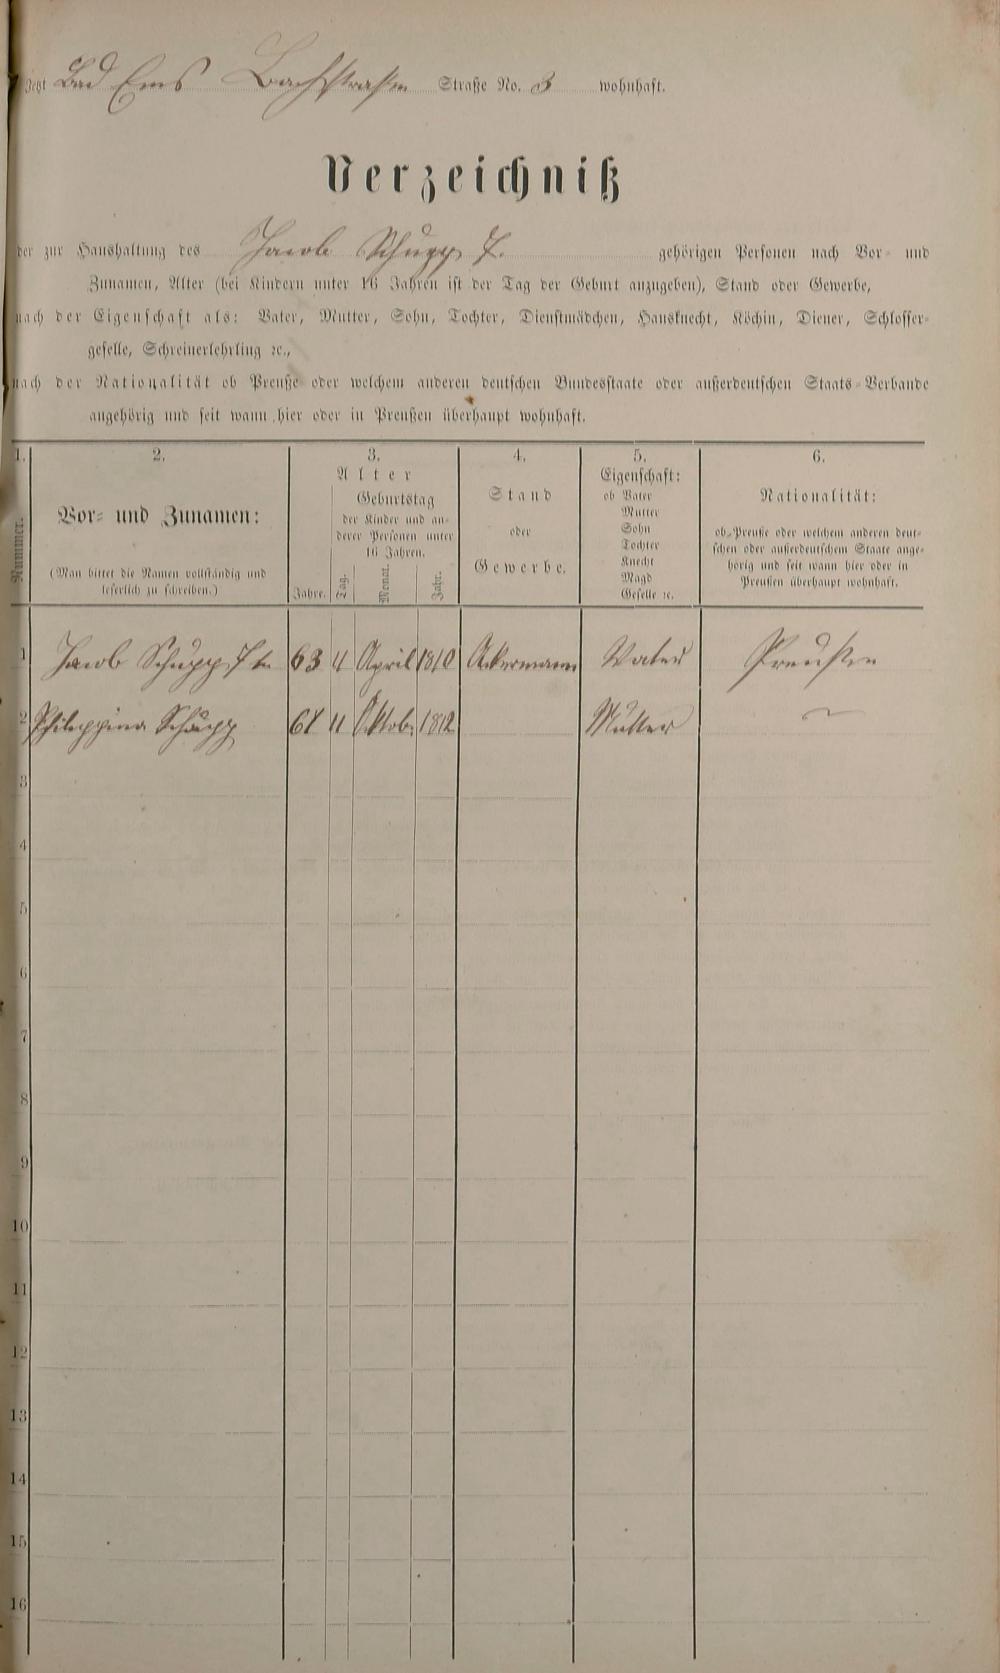 Jetzt Bad Ems Bachstrasse Straße No. 3 wohnhaft.
Verzeichniß
der zur Haushaltung des Jacob Schupp gehörigen Personen nach Vor- und
Zunamen, Alter (bei Kindern unter 16 Jahren ist der Tag der Geburt anzugeben), Stand oder Gewerbe,
nach der Eigenschaft als: Vater, Mutter, Sohn, Tochter, Dienstmädchen, Hausknecht, Köchin, Diener, Schlosser-
geselle, Schreinerlehrling ꝛc.,
nach der Nationalität ob Preuße oder welchem anderen deutschen Bundesstaate oder außerdeutschen Staats-Verbande
angehörig und seit wann hier oder in Preußen überhaupt wohnhaft.
1. 2. 3. 4. 5. 6.
Nummer.
Vor- und Zunamen:
(Man bittet die Namen vollständig und
leserlich zu schreiben.)
Alter
Geburtstag
der Kinder und an-
derer Personen unter
16 Jahren.
Jahre. Tag. Monat. Jahr.
Stand
oder
Gewerbe.
Eigenschaft:
ob Vater
Mutter
Sohn
Tochter
Knecht
Magd
Geselle ꝛc.
Nationalität:
ob Preuße oder welchem anderen deut-
schen oder außerdeutschem Staate ange-
hörig und seit wann hier oder in
Preußen überhaupt wohnhaft.
1 Jacob Schupp 63 4 April 1812 Ackermann Vater Preußen
2 Philippina Schupp 61 11 Oktob. 1812 Mutter
3
4
5
6
7
8
9
10
11
12
13
14
15
16